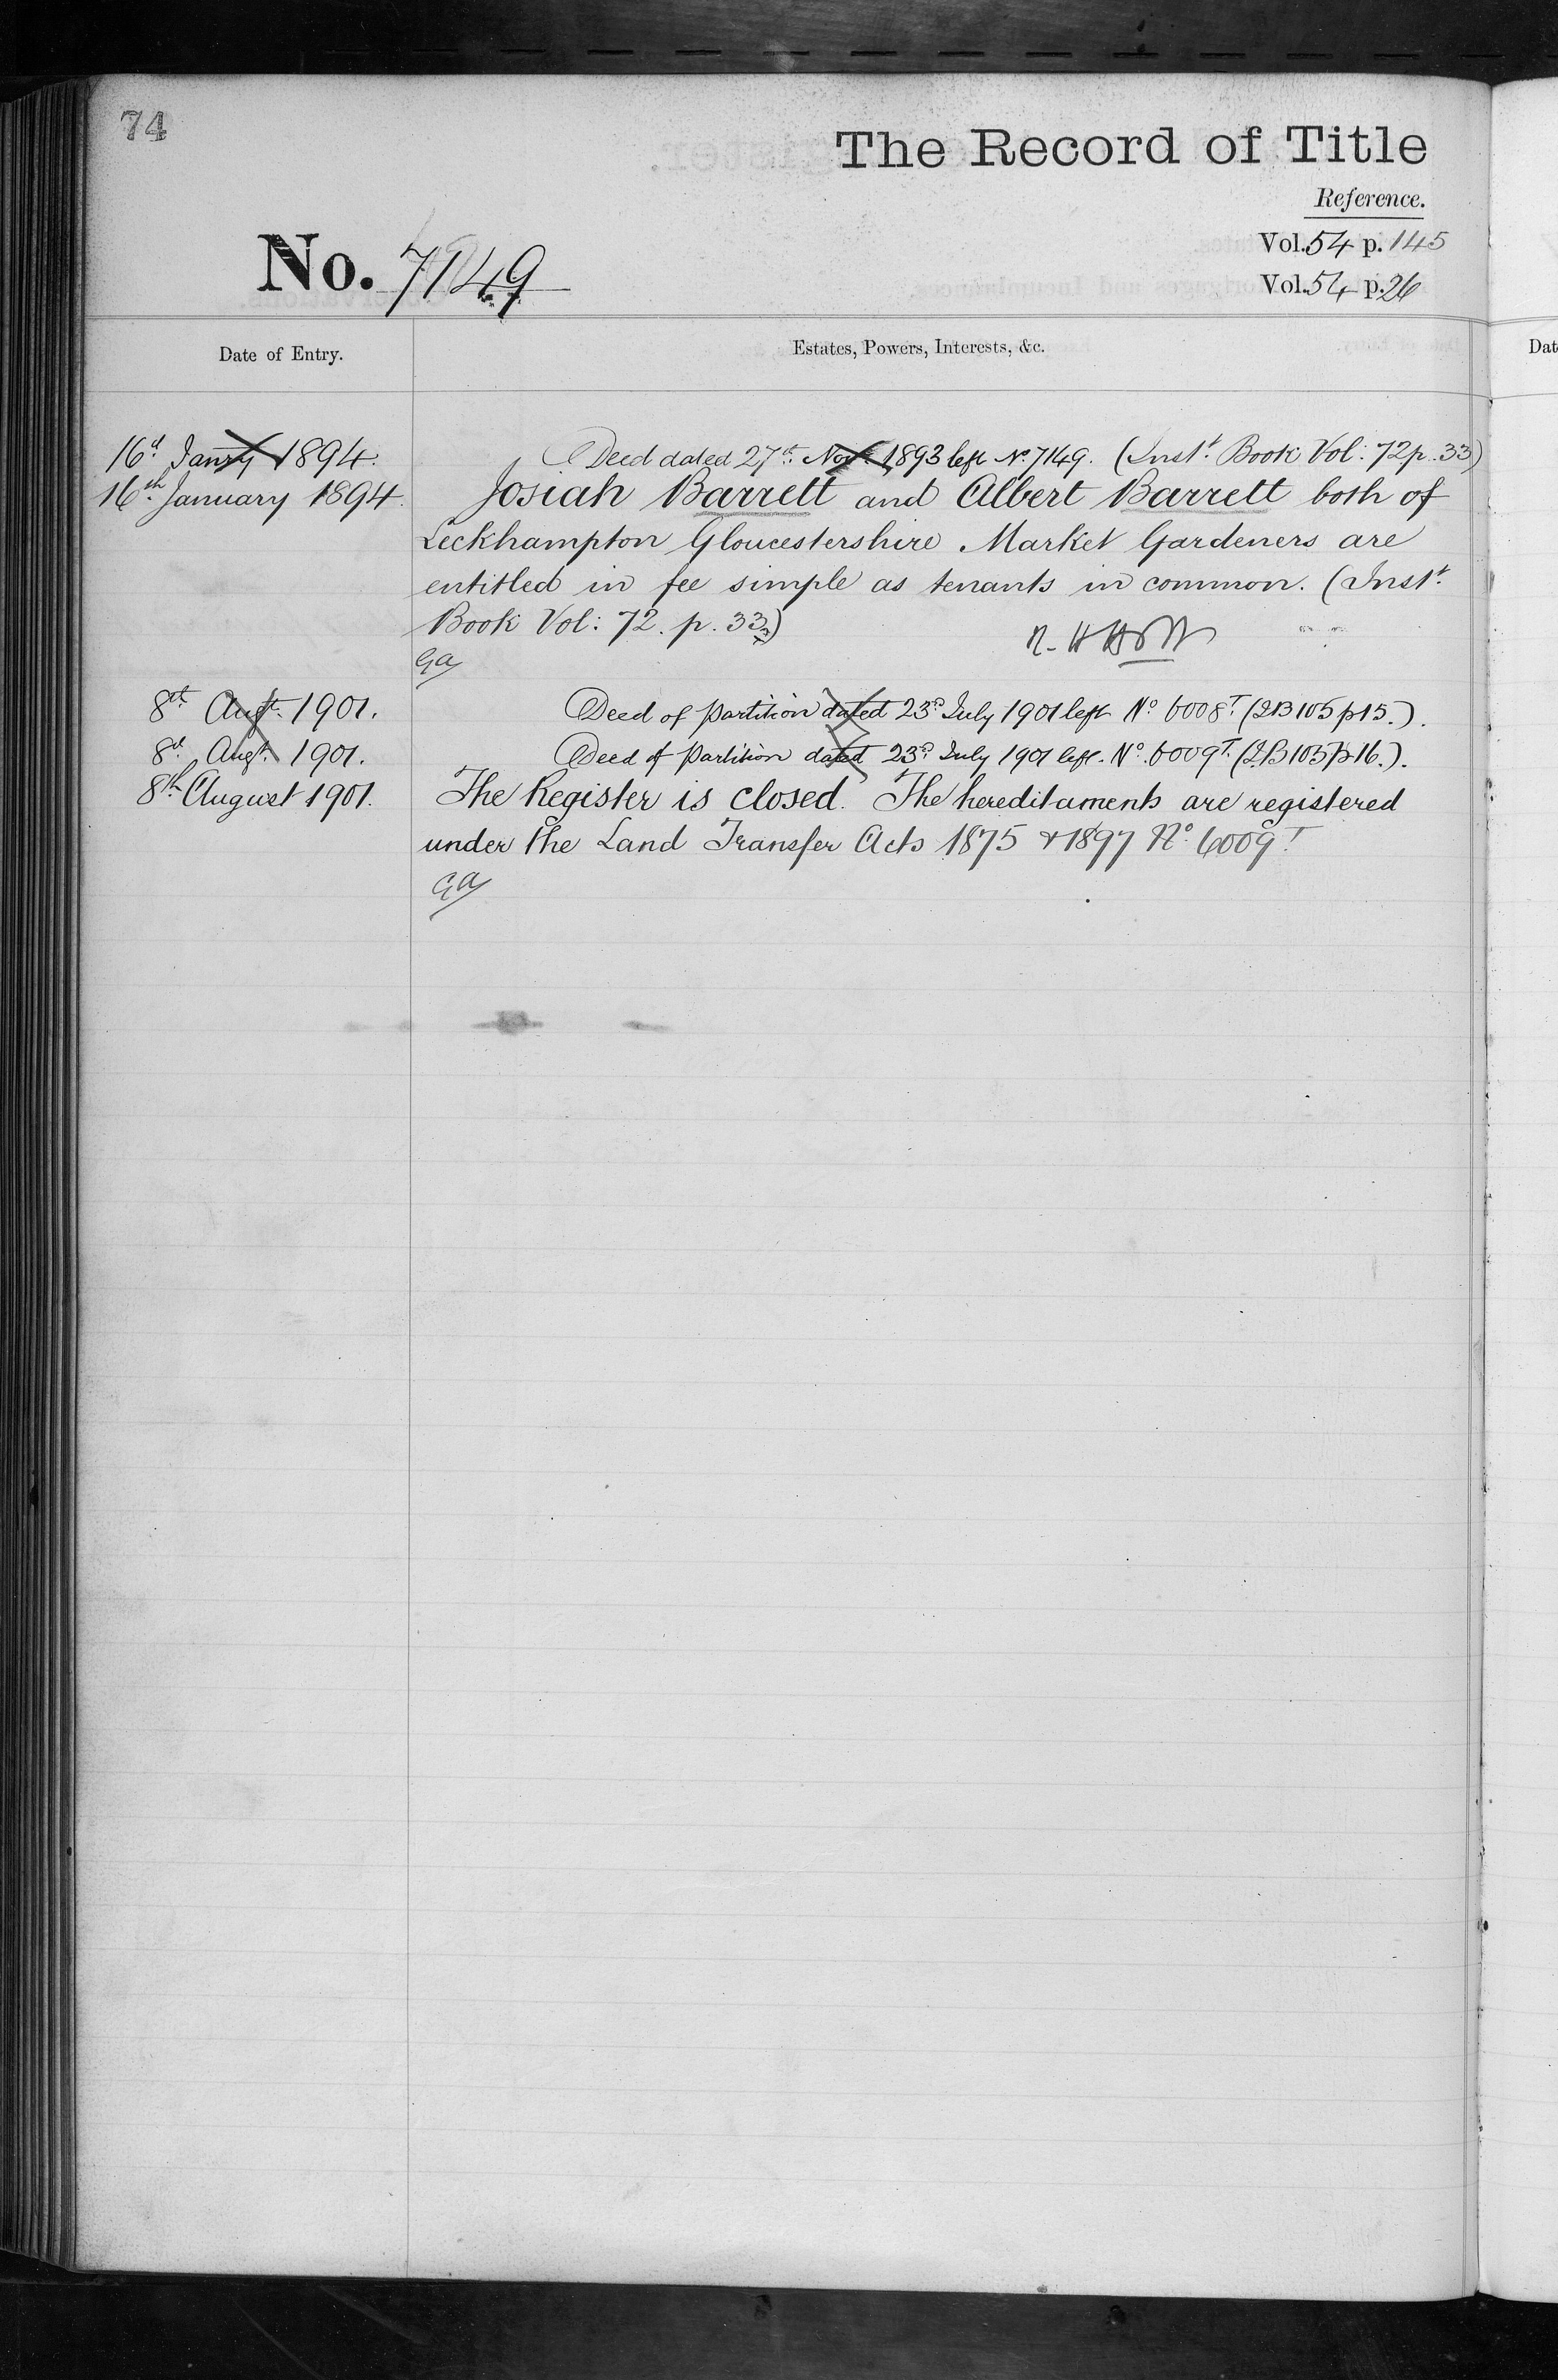 74
The Record of Title
Reference.
No. 7149
Vol. 54 p. 145
Vol. 54 p. 26
Date of Entry.
Estates, Powers, Interests, &c.
Dat
16th Janry 1894. Deed dated 27th Novr 1893 left No 7149. (Inst. Book Vol: 72 p. 33)
16th January 1894. Josiah Barrett and Albert Barrett both of
Leckhampton Gloucestershire Market Gardeners are
entitled in fee simple as tenants in common. (Inst.
Book Vol: 72. p. 33)
GA
8th Augt. 1901. Deed of partition dated 23rd July 1901 left No 6008T (IB 105 p 15.).
8th Augt. 1901. Deed of Partition dated 23rd July 1901 left. No. 6009T. (IB 105 p 16.).
8th August 1901. The Register is closed. The hereditaments are registered
under the Land Transfer Acts 1875 & 1897 No 6009T
GA